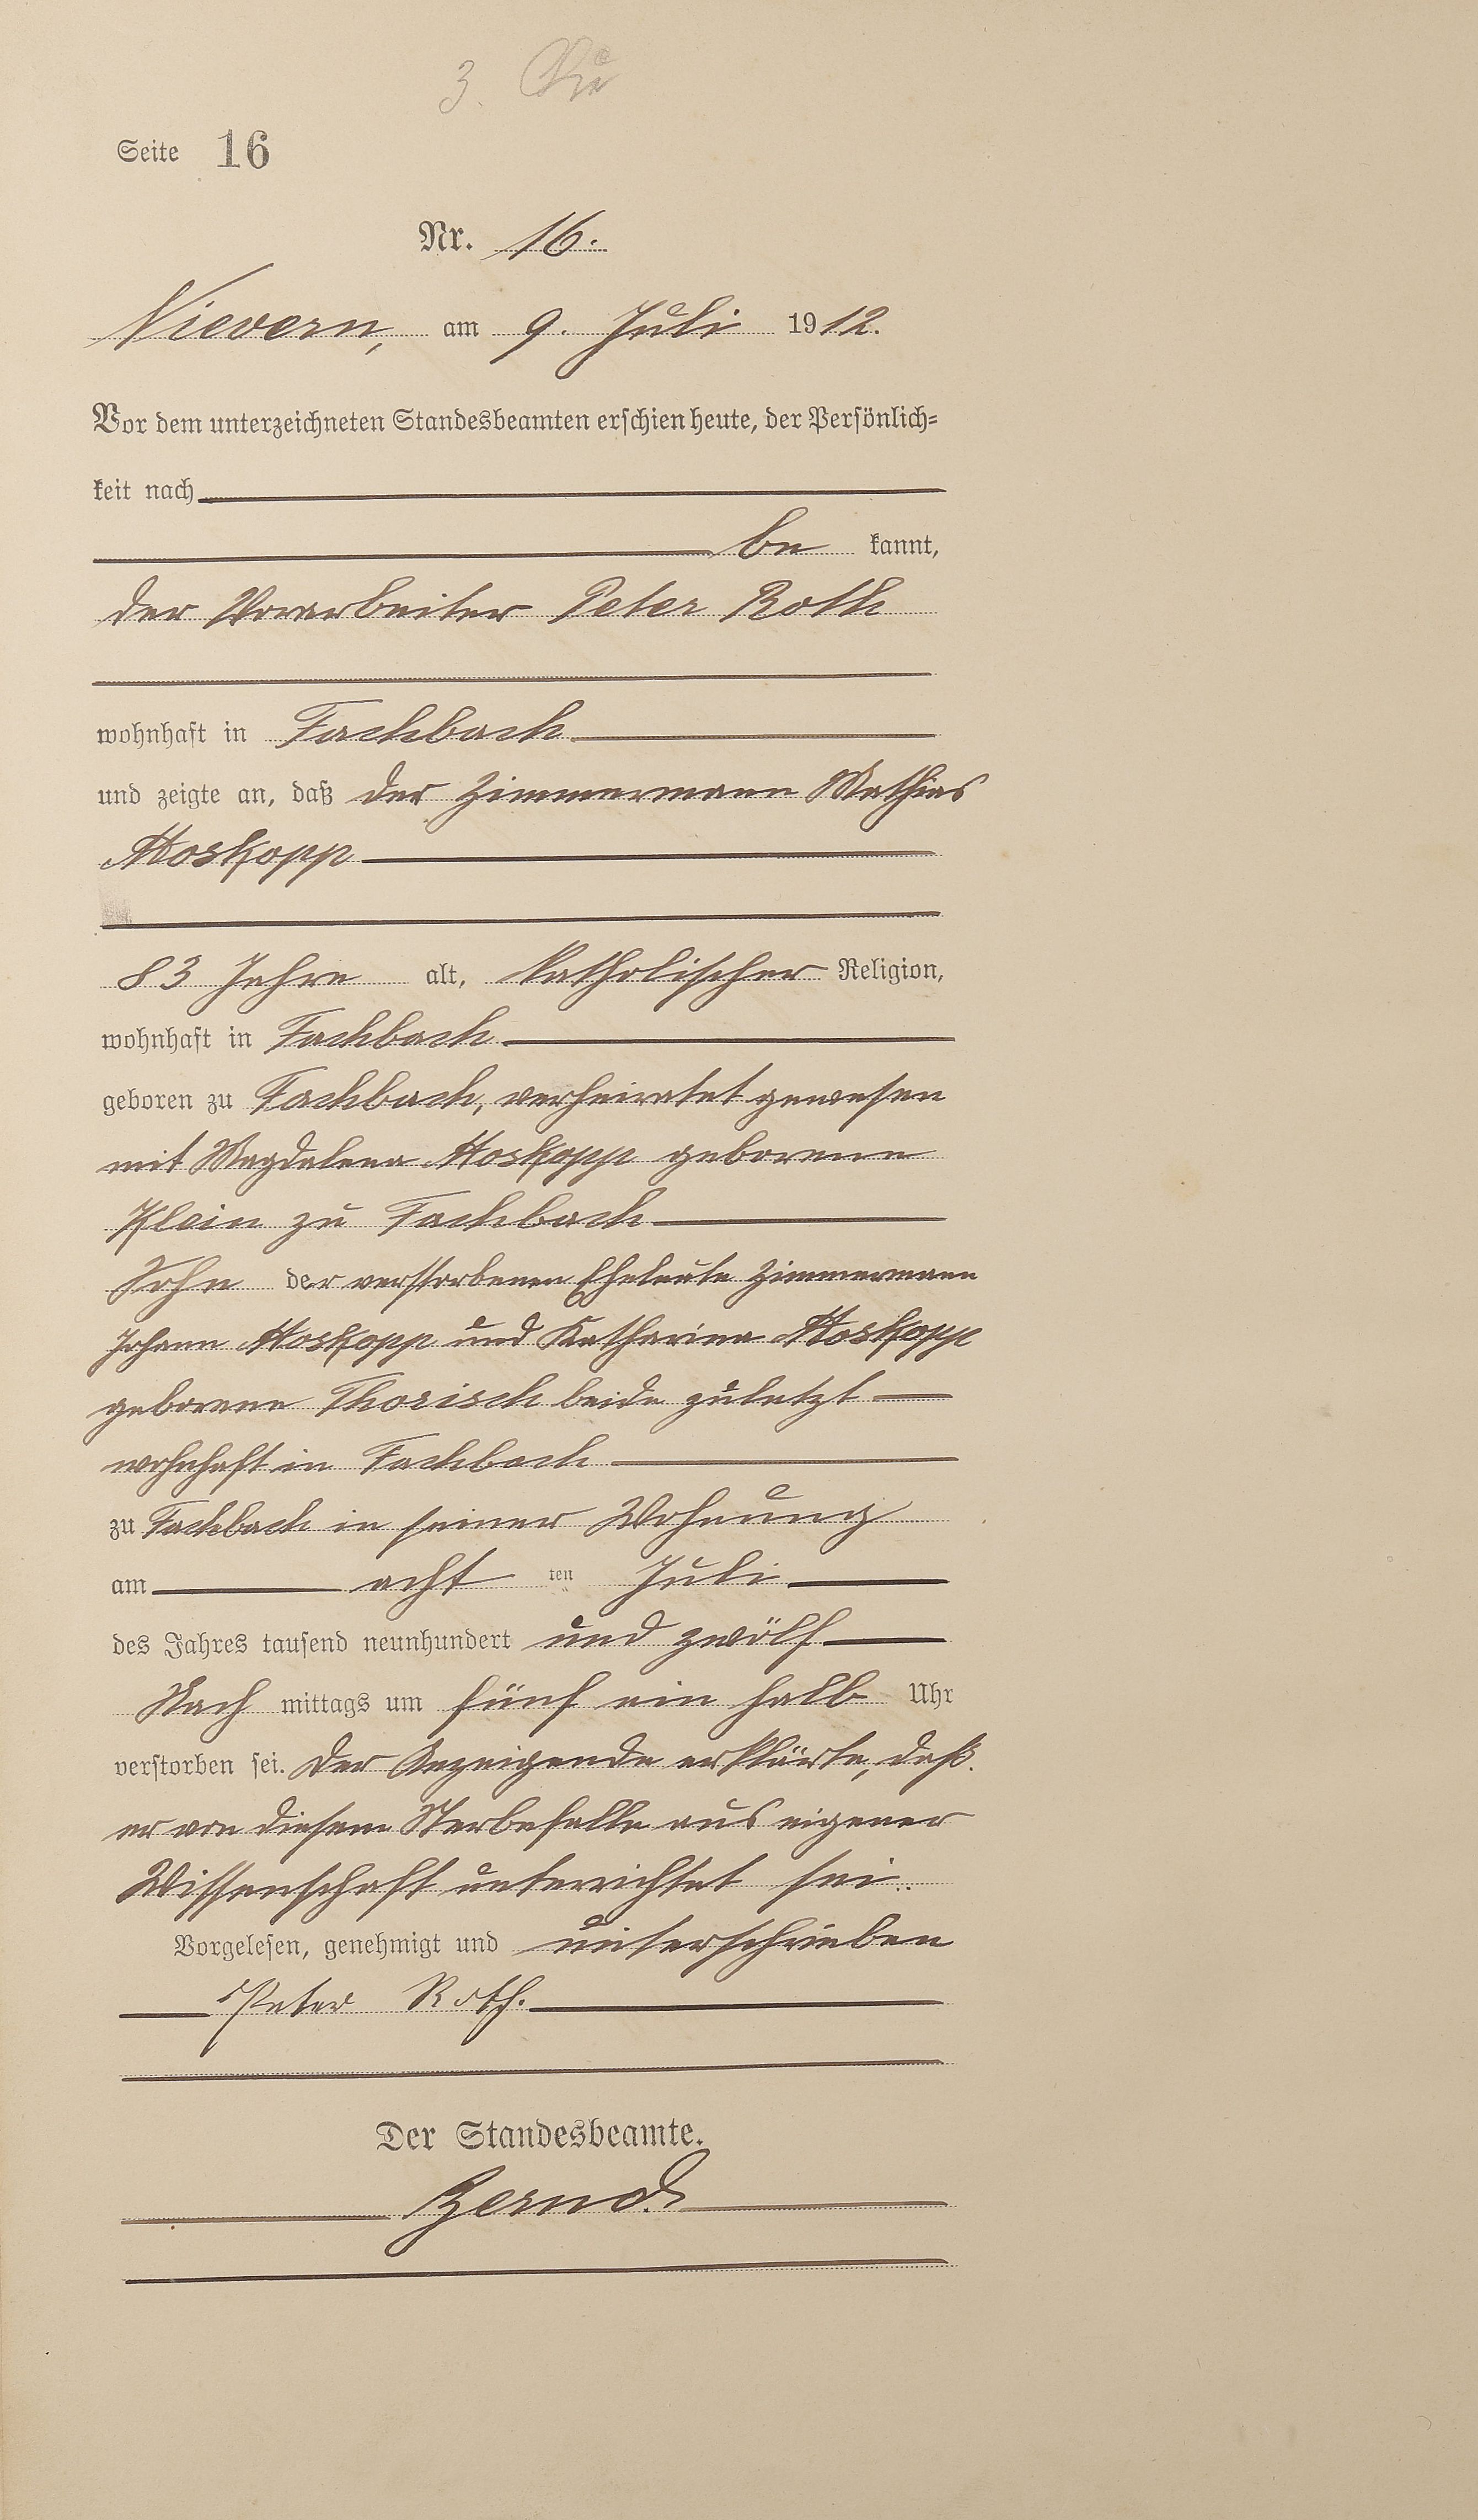 3.
Seite 16
Nr. 16.
Nievern, am 9. Juli 1912.
Vor dem unterzeichneten Standesbeamten erschien heute, der Persönlich-
keit nach
be kannt,
der Vorarbeiter Peter Roth
wohnhaft in Fachbach
und zeigte an, daß der Zimmermann Mathias
Moskopp
83 Jahre alt, katholischer Religion,
wohnhaft in Fachbach
geboren zu Fachbach, verheiratet gewesen
mit Magdalena Moskopp geborene
Klein zu Fachbach
Sohn der verstorbenen Eheleute Zimmermann
Johann Moskopp und Katharina Moskopp
geborene Thorisch beide zuletzt
wohnhaft in Fachbach
zu Fachbach in seiner Wohnung
am acht ten Juli
des Jahres tausend neunhundert und zwölf
Nach mittags um fünf ein halb Uhr
verstorben sei. Der Anzeigende erklärte, daß
er von diesem Sterbefalle aus eigener
Wissenschaft unterrichtet sei.
Vorgelesen, genehmigt und unterschrieben
Peter Roth.
Der Standesbeamte.